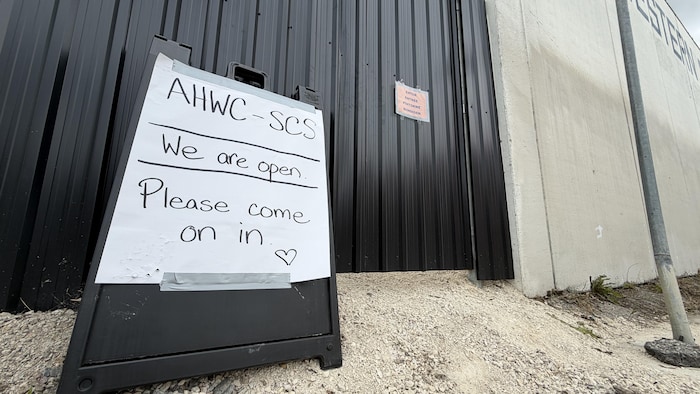 AHWC-SCS
We are open
Please come
on in ♡